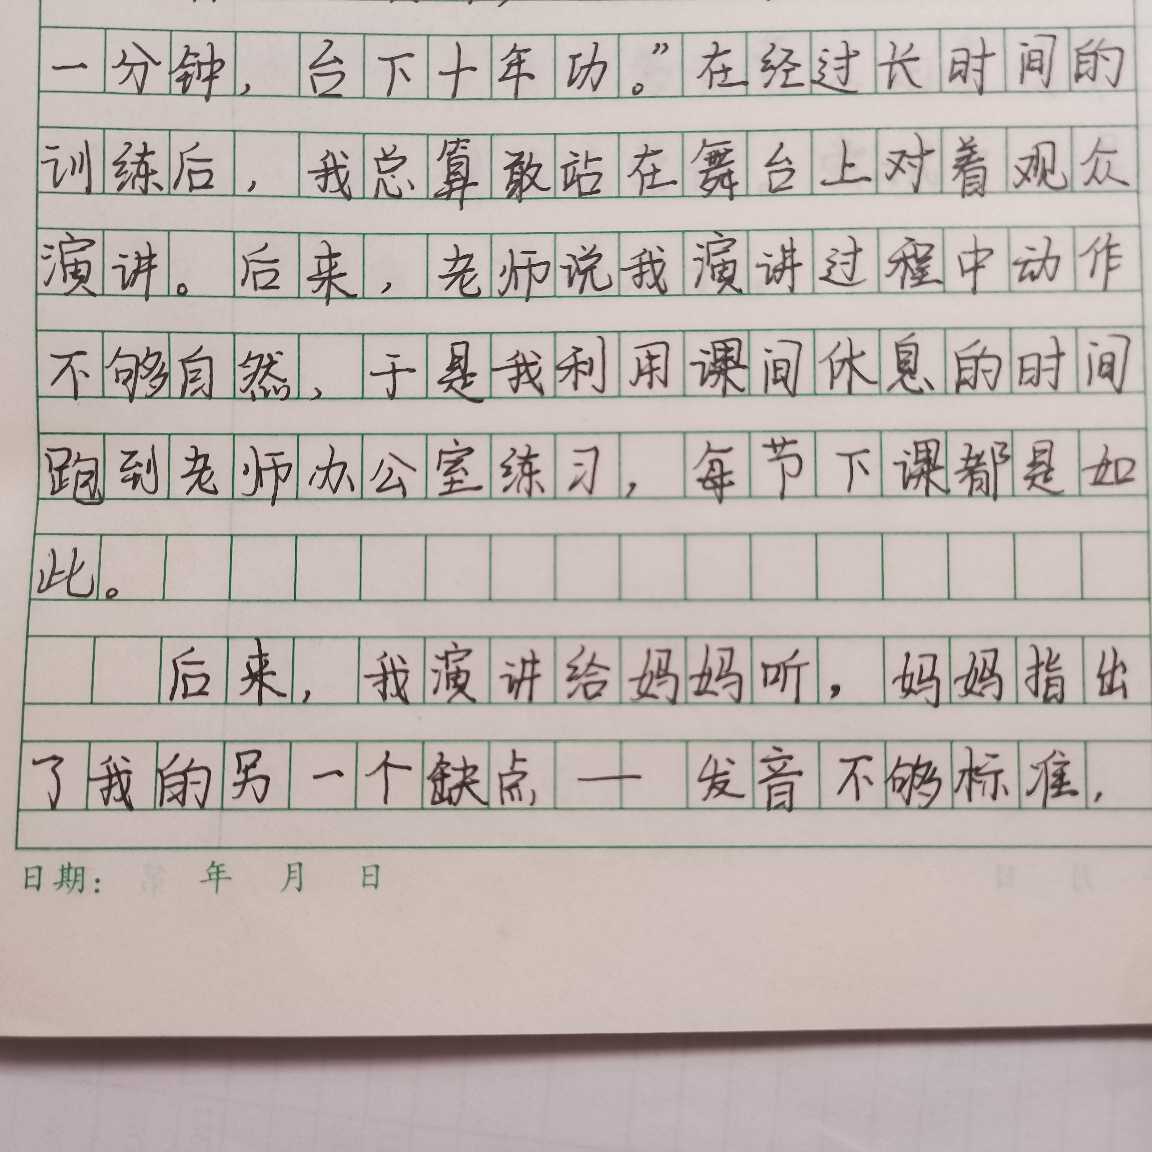 一分钟，台下十年功。”在经过长时间的
训练后，我总算敢站在舞台上对着观众
演讲。后来，老师说我演讲过程中动作
不够自然，于是我利用课间休息的时间
跑到老师办公室练习，每节下课都是如
此。
后来，我演讲给妈妈听，妈妈指出
了我的另一个缺点——发音不够标准，
日期： 年 月 日